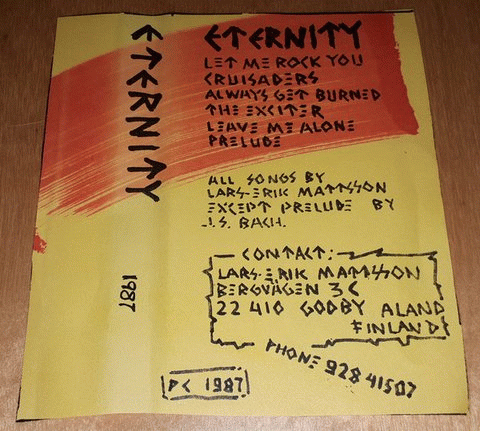 ETERNITY
1987
ETERNITY
LET ME ROCK YOU
CRUISADERS
ALWAYS GET BURNED
THE EXCITER
LEAVE ME ALONE
PRELUDE
ALL SONGS BY
LARS-ERIK MATTSSON
EXCEPT PRELUDE BY
J.S. BACH.
CONTACT:
LARS-ERIK MATTSSON
BERGVÄGEN 3C
22 410 GODBY ALAND
FINLAND
PHONE 928 41507
PC 1987